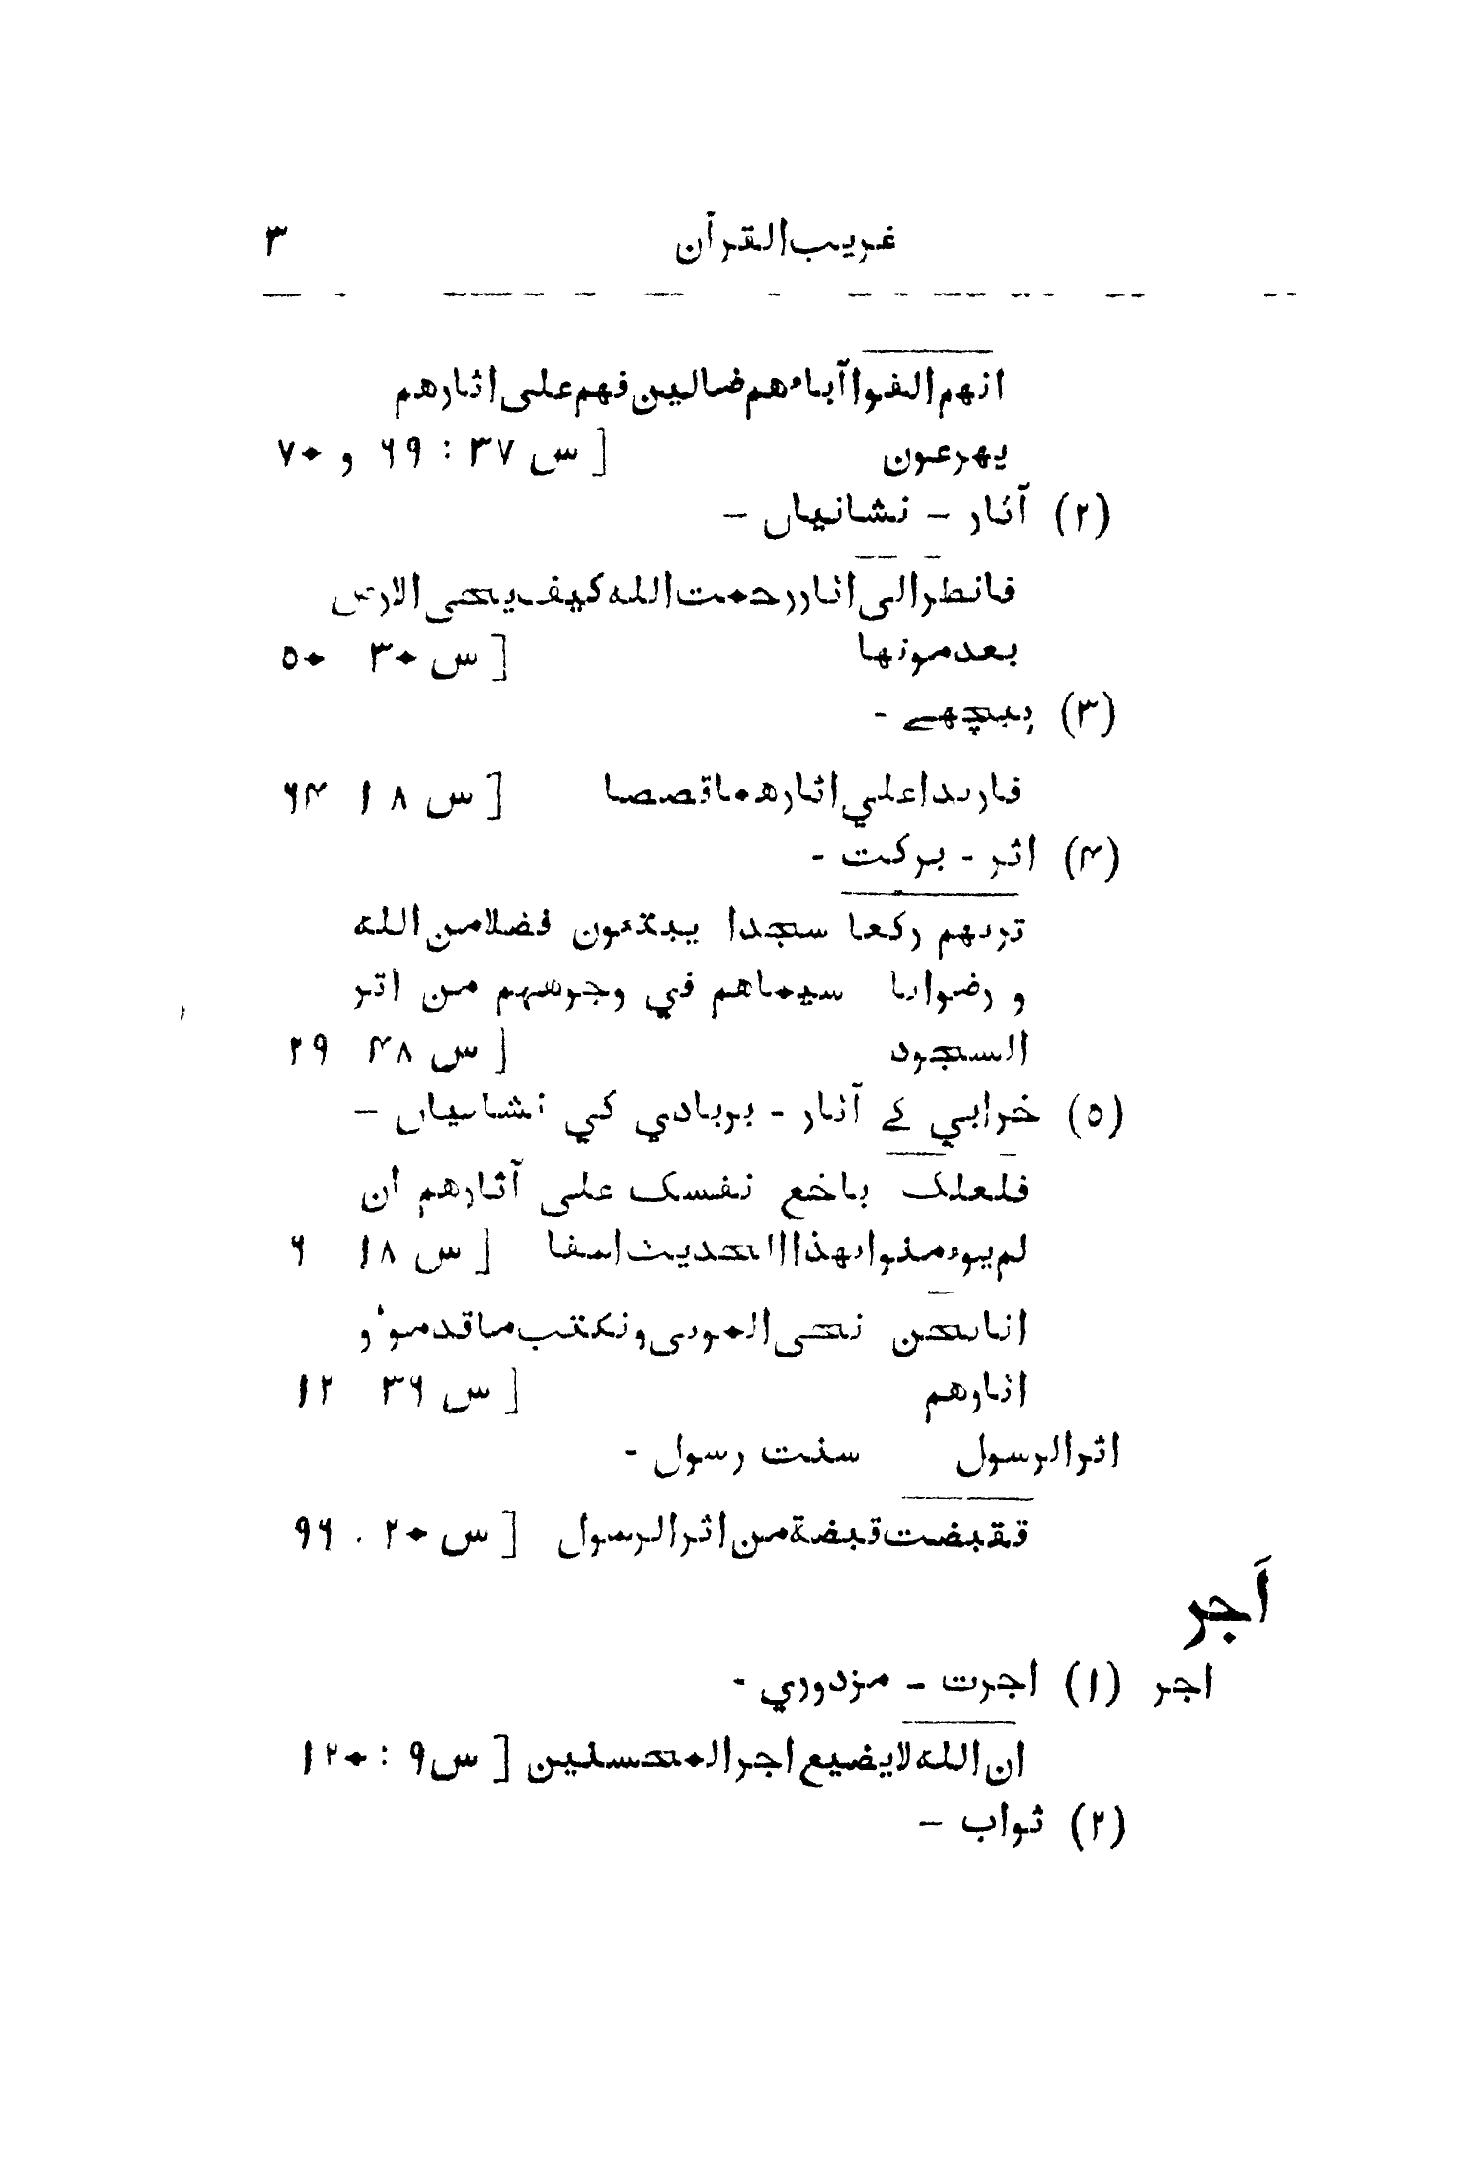 غریب‌القرآن ۳
انهم الفوا آباءهم ضالین فهم علی اثارهم
یهرعون [ س ۳۷ : ۶۹ و ۷۰
(۲) آثار – نشانیاں –
فانظر الی اثار رحمت الله کیف یحی الارض
بعد موتها [ س ۳۰ ۵۰
(۳) پیچھے -
فارتدا علي اثارهما قصصا [ س ۱۸ ۶۴
(۴) اثر - برکت -
تریهم رکعا سجدا یبتغون فضلا من الله
و رضوانا سیماهم في وجوههم من اثر
السجود [ س ۴۸ ۲۹
(۵) خرابي کے آثار - بربادي کي نشانیاں –
فلعلک باخع نفسک علی آثارهم ان
لم یوءمنوا بهذا الحدیث اسفا [ س ۱۸ ۶
انا نحن نحی الموتی و نکتب ما قدموا و
اثارهم [ س ۳۶ ۱۲
اثر الرسول سنت رسول -
فقبضت قبضة من اثر الرسول [ س ۲۰ . ۹۶
اَجر
اجر (۱) اجرت – مزدوري -
ان الله لا یضیع اجر المحسنین [ س ۹ : ۱۲۰
(۲) ثواب –